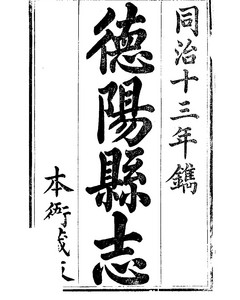 同治十三年鐫
德陽縣志
本衙藏